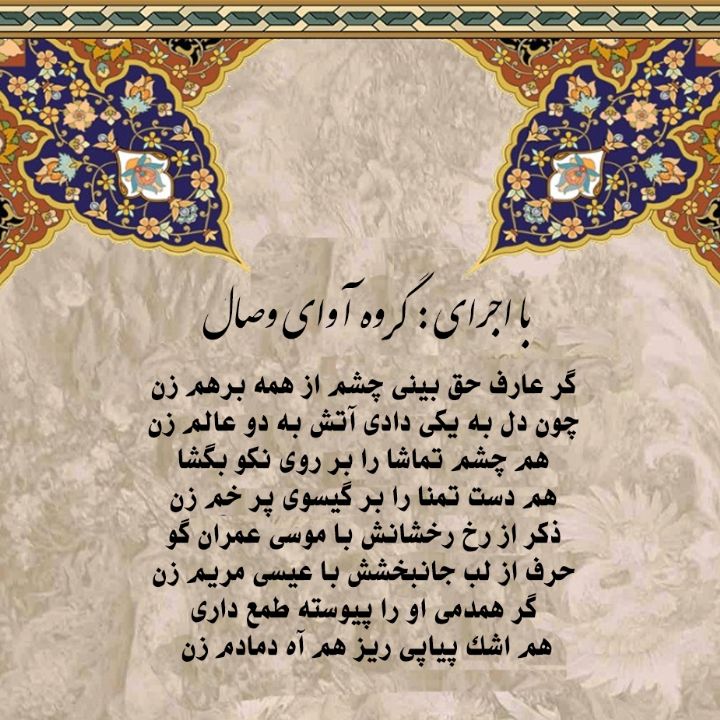 با اجرای : گروه آوای وصال
گر عارف حق بینی چشم از همه برهم زن
چون دل به یکی دادی آتش به دو عالم زن
هم چشم تماشا را بر روی نکو بگشا
هم دست تمنا را بر گیسوی پر خم زن
ذکر از رخ رخشانش با موسی عمران گو
حرف از لب جانبخشش با عیسی مریم زن
گر همدمی او را پیوسته طمع داری
هم اشك پیاپی ریز هم آه دمادم زن